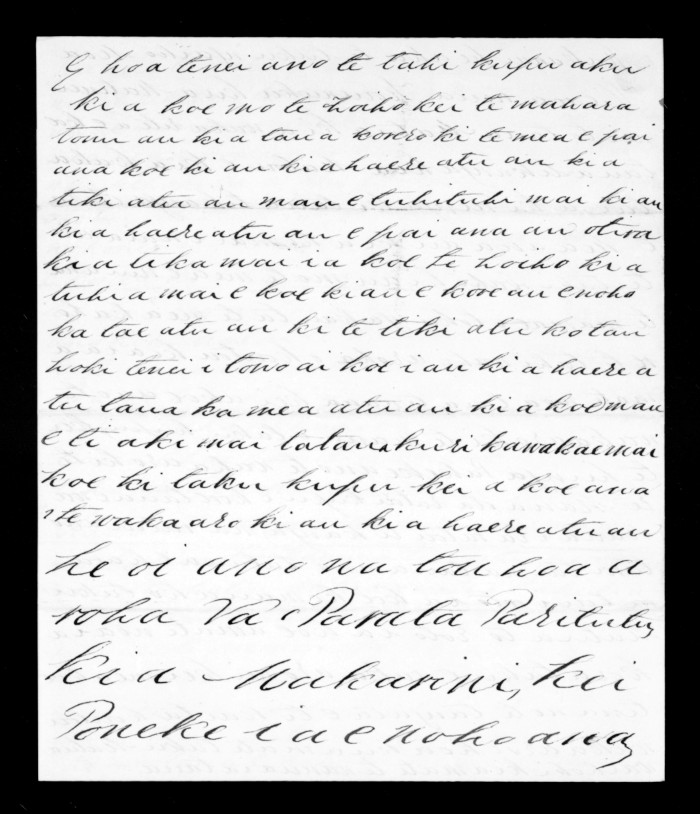 E hoa tenei ano te tahi kupu aku
ki a koe mo te hoho kei te mahara
tonu au ki a taua korero ki te mea e pai
ana koe ki au ki a haere atu au ki a
tiki atu au mau e tuhituhi mai ki au
ki a haere atu au e pai ana au otira
ki a tika mai i a koe te hoiho ki a
tuhi a mai e koe ki au e kore au e noho
ka tae atu au ki te tiki atu ko tau
hoki tenei i tono ai koe i au ki a haere a
tu taua ka mea atu au ki a koe mau
e ti aki mai tatau kuri ka wakae mai
koe ki taku kupu kei a koe ana
te wakaaro ki au ki a haere atu au
he oi ano na tou hoa a
roha Na Parata Parituhu
kia Makarini, kei
Poneke i a e noho ana